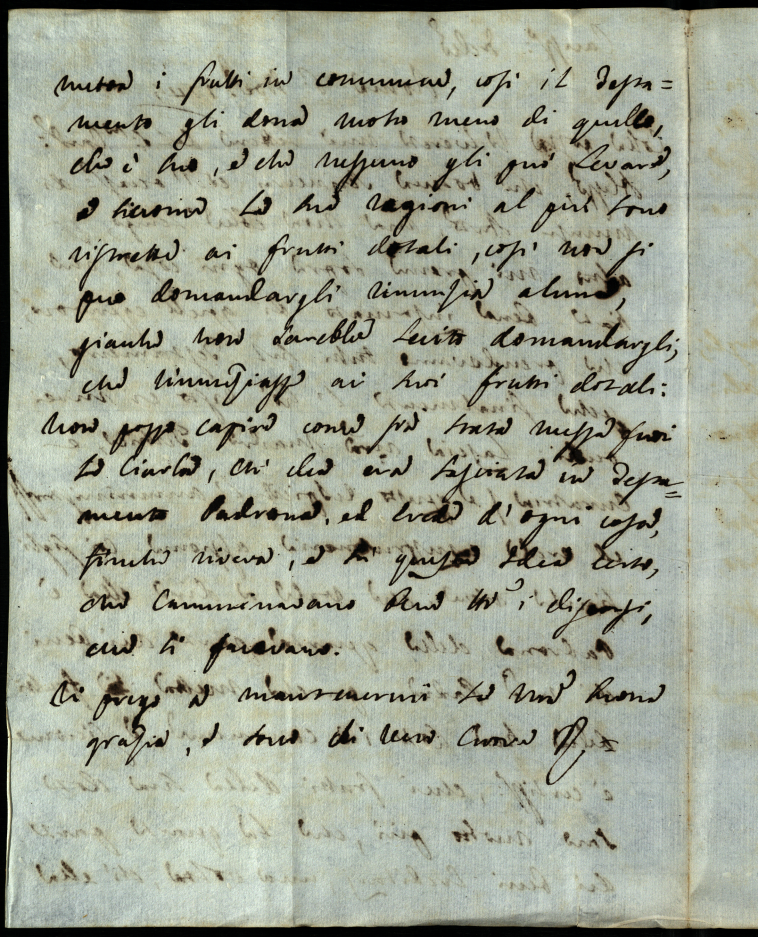 mettere i frutti in commune, così il Testa=
mento gli dona molto meno di quello,
che è suo, e che nessuno gli può levare,
e siccome le sue ragioni al più sono
ristrette ai frutti dotali, così non si
può domandargli rinunzia alcuna,
giache non sarebbe lecito domandargli,
che rinunziasse ai suoi frutti dotali:
Non posso capire come sia stata messa fuori
la Ciarla, ch' ella era lasciata in Testa=
mento Padrona, ed Erede d' ogni cosa,
finche viveva, e su questa Idea certo,
che camminavano bene tt.i i discorsi,
che si facevano.
Vi prego a mantenermi la vr̃a buona
grazia, e sono di vero Cuore